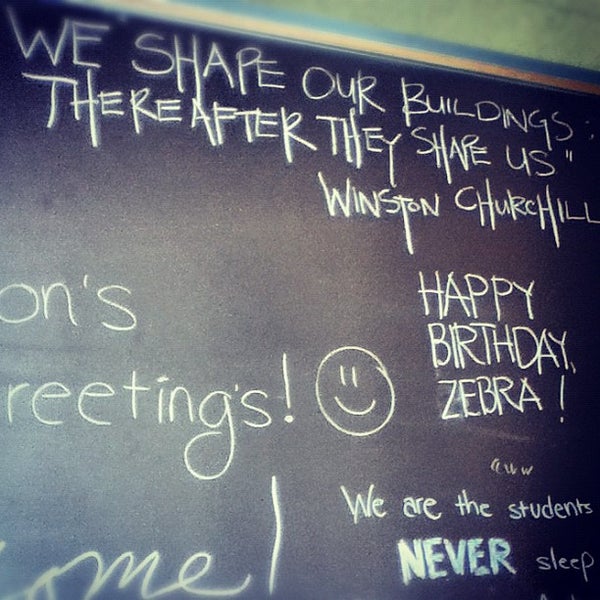 WE SHAPE OUR BUILDINGS:
THEREAFTER THEY SHAPE US"
WINSTON CHURCHILL
on's
reetings!
HAPPY
BIRTHDAY,
ZEBRA!
We are the students
NEVER sleep
ome!